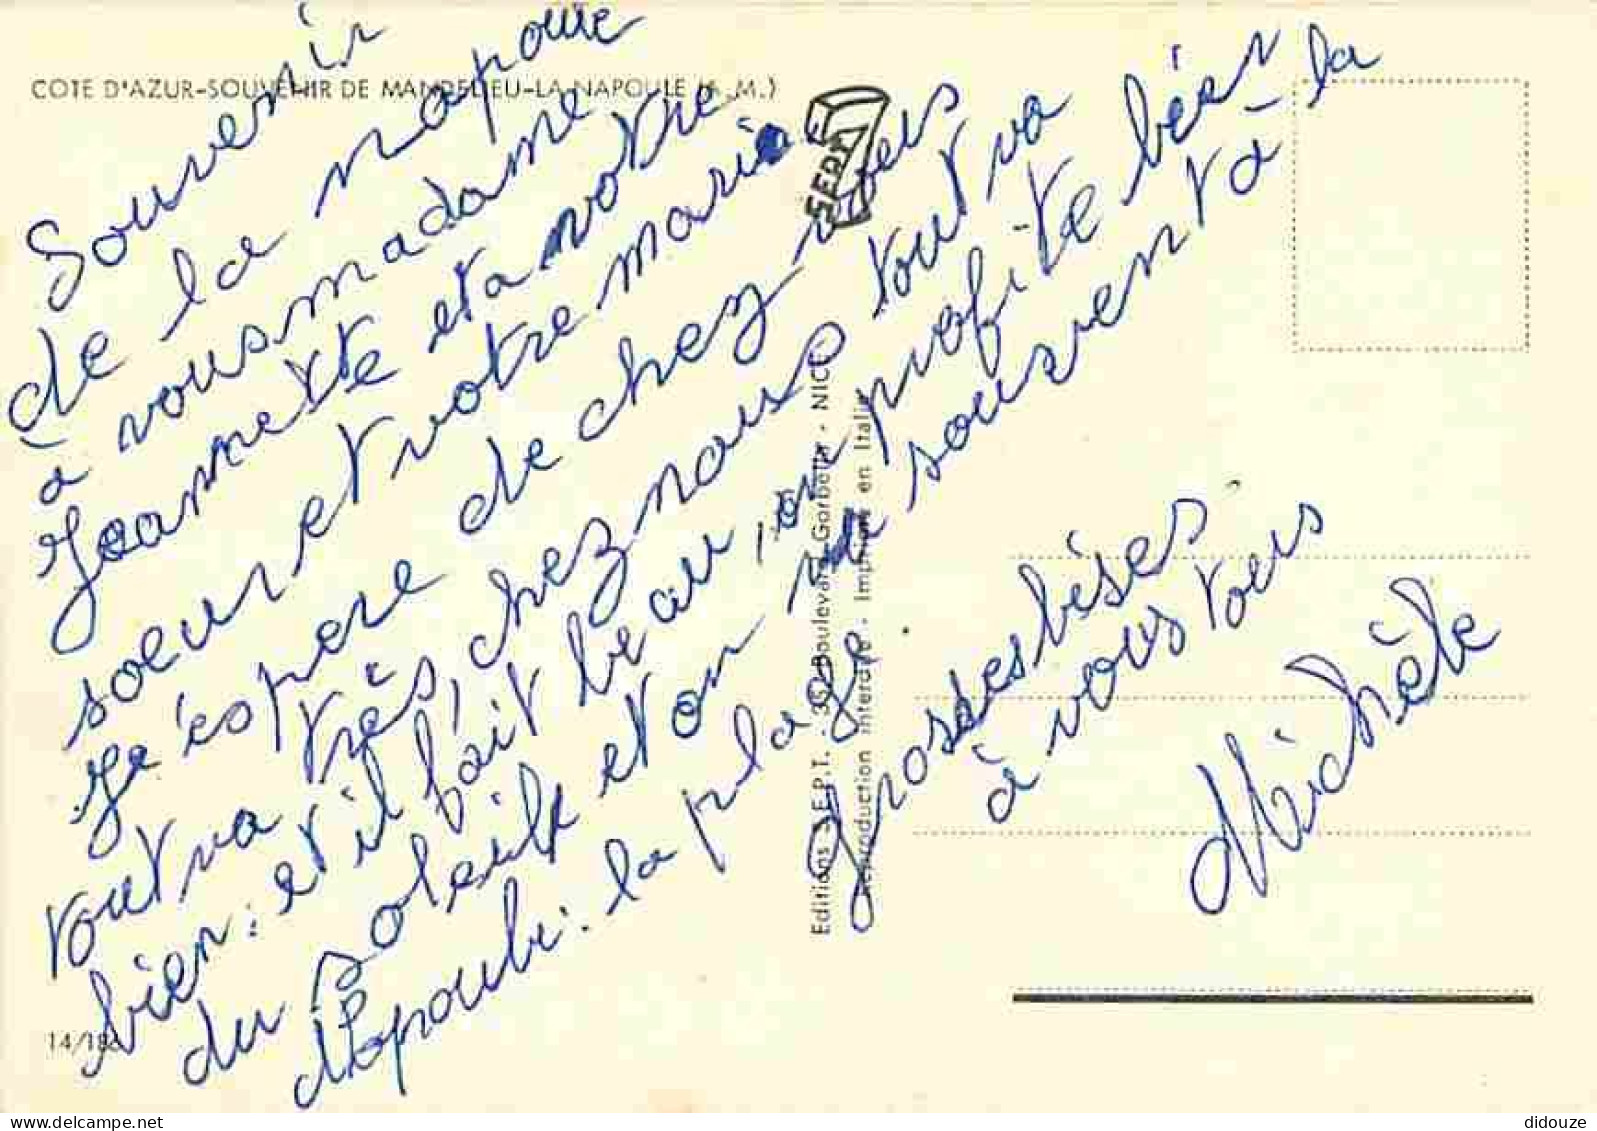 COTE D'AZUR-SOUVENIR DE MANDELIEU-LA-NAPOULE (A.-M.)
SEPT
Souvenir
de la napoule
à vous madame
Jeannette et a votre
soeur et votre marie
Je éspere de chez vous
tout va très, chez nous tout va
bien: et il fait beau, on profite bésr
du soleilt et on va souvent à la
Napoule: la plage.
Grosses béses
à vous tous
Michèle
Editions S.E.P.T. - 35, Boulevard Gorbella - NICE
Reproduction interdite - Imprimé en Italie
14/186
didouze